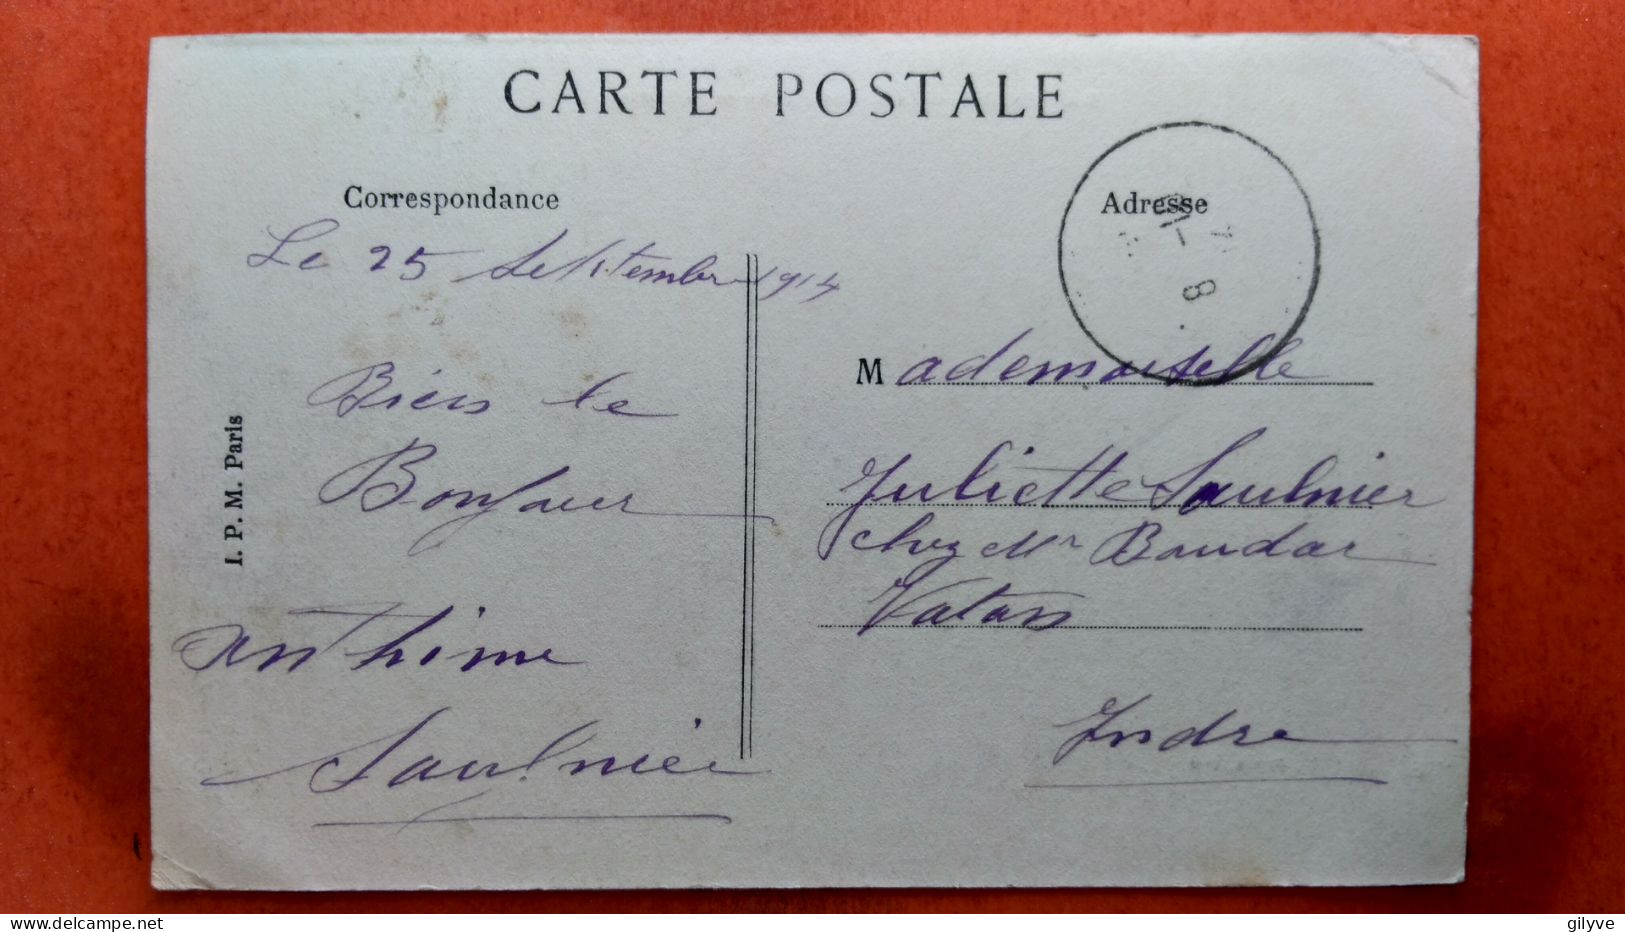 CARTE POSTALE
Correspondance
Adresse
Le 25 Septembre 1914
Biens le
Bonjour
Anthime
Saulnier
I. P. M. Paris
Mademoiselle
Juliette Saulnier
chez Mr Baudat
Vatan
Indre
delcampe.net
gilyve